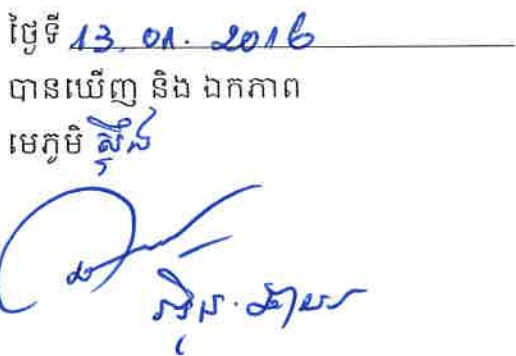 ថ្ងៃទី 13. 01. 2016
បានឃើញ និង ឯកភាព
មេភូមិ ស្ទឹង